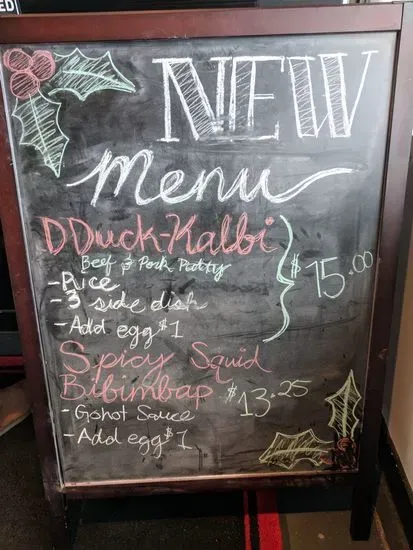 ED
NEW
Menu
DDuck-Kalbi
Beef & Pork Patty
- Rice
- 3 side dish
- Add egg $1
$15.00
Spicy Squid
Bibimbap $13.25
- Gohot Sauce
- Add egg $1